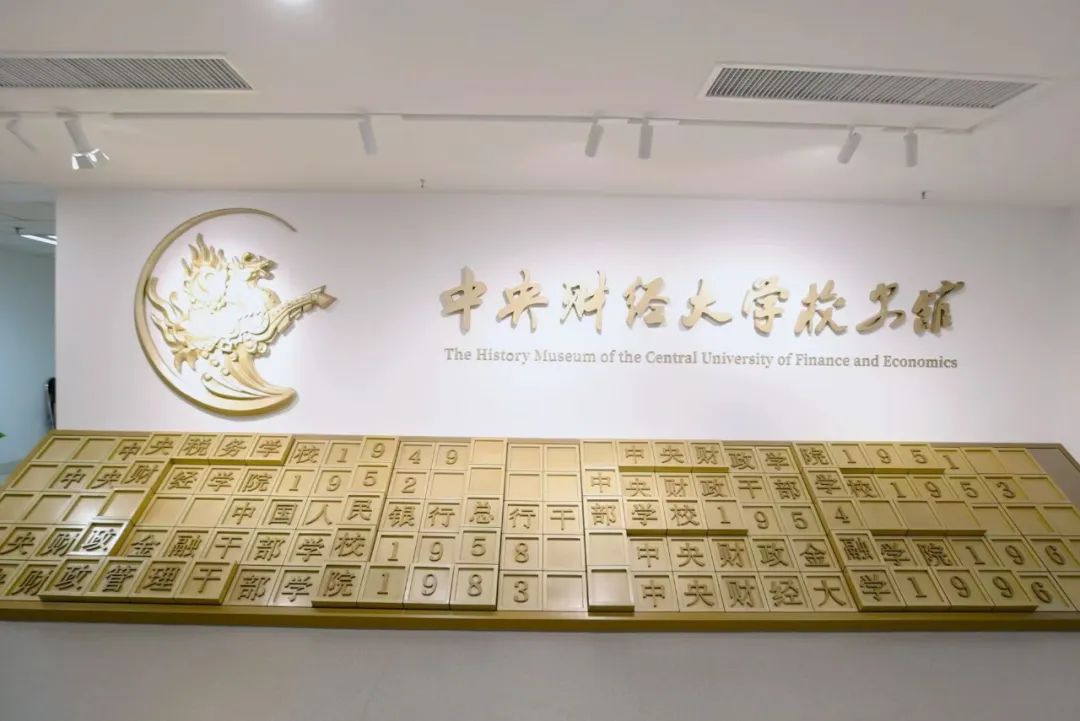 中央财经大学校史馆
The History Museum of the Central University of Finance and Economics
中央税务学校1949 中央财政学院1951
中央财经学院1952 中央财政干部学校1953
中国人民银行总行干部学校1954
央财政金融干部学校1958 中央财政金融学院196
财政管理干部学院1983 中央财经大学1996